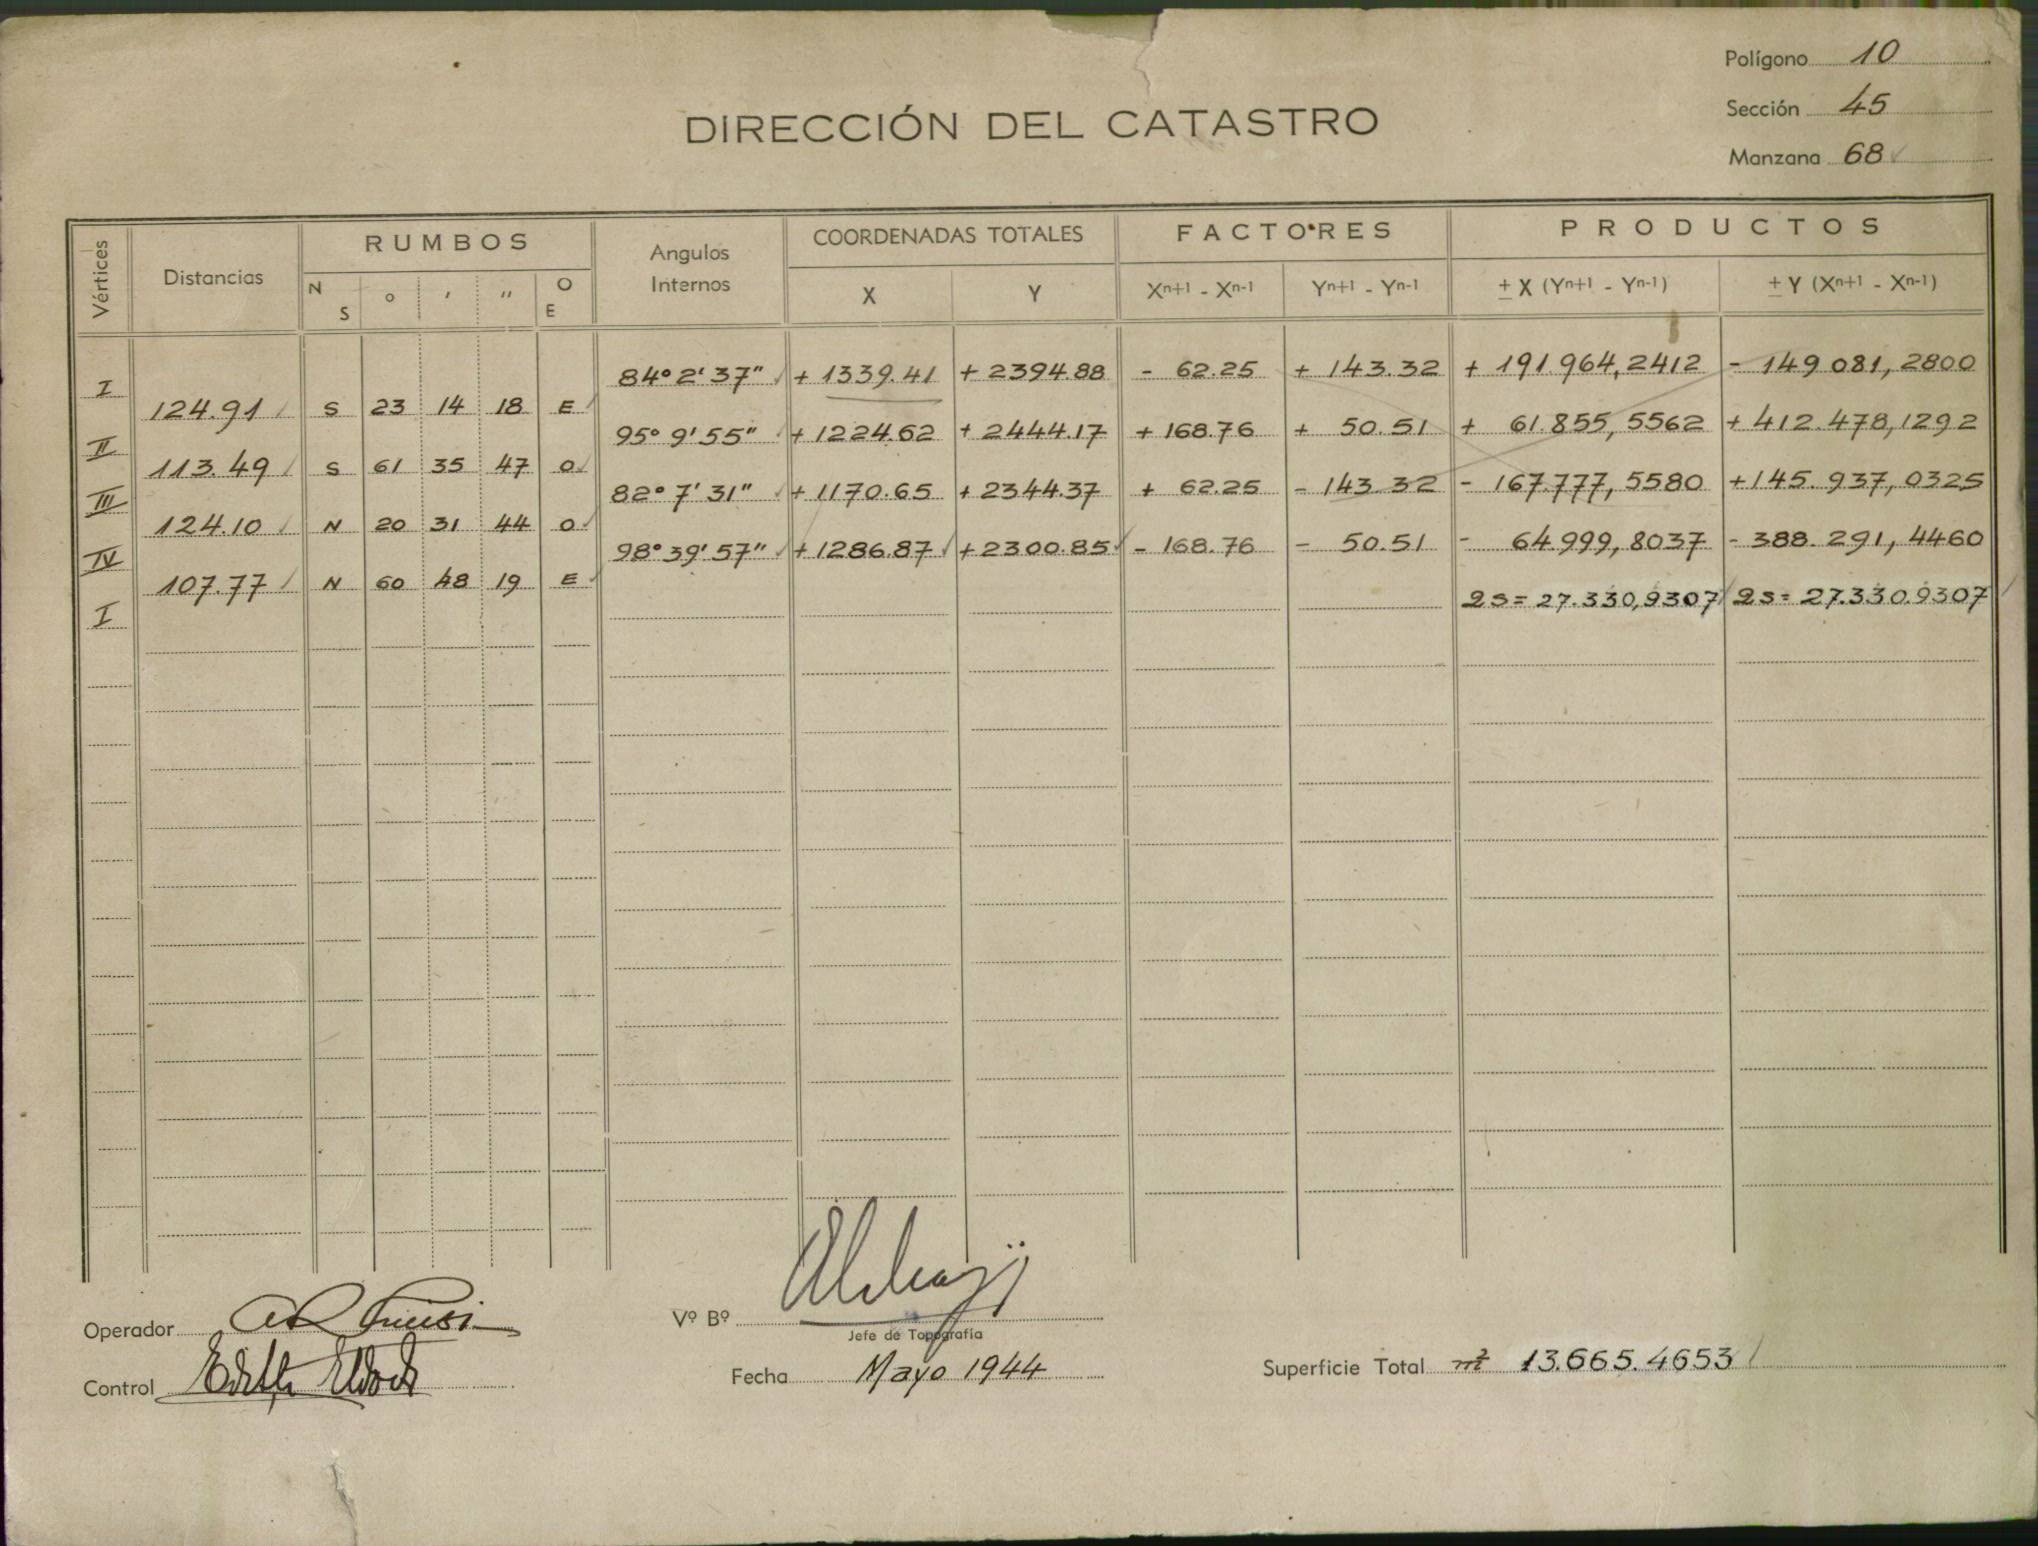 Polígono 10
Sección 45
Manzana 68
DIRECCIÓN DEL CATASTRO
Vértices Distancias RUMBOS Angulos Internos COORDENADAS TOTALES FACTORES PRODUCTOS
N S ° ' " O E X Y Xⁿ⁺¹ - Xⁿ⁻¹ Yⁿ⁺¹ - Yⁿ⁻¹ ± X (Yⁿ⁺¹ - Yⁿ⁻¹) ± Y (Xⁿ⁺¹ - Xⁿ⁻¹)
I 84° 2' 37" + 1339.41 + 2394.88 - 62.25 + 143.32 + 191.964,2412 - 149 081,2800
124.91 S 23 14 18 E
II 95° 9' 55" + 1224.62 + 2444.17 + 168.76 + 50.51 + 61.855,5562 + 412.478,1292
113.49 S 61 35 47 O
III 82° 7' 31" + 1170.65 + 2344.37 + 62.25 - 143.32 - 167.777,5580 + 145.937,0325
124.10 N 20 31 44 O
IV 98° 39' 57" + 1286.87 + 2300.85 - 168.76 - 50.51 - 64.999,8037 - 388.291,4460
107.77 N 60 48 19 E
I 2S = 27.330,9307 2S = 27.330.9307
Operador
Control
Vº Bº
Jefe de Topografía
Fecha Mayo 1944
Superficie Total m² 13.665.4653